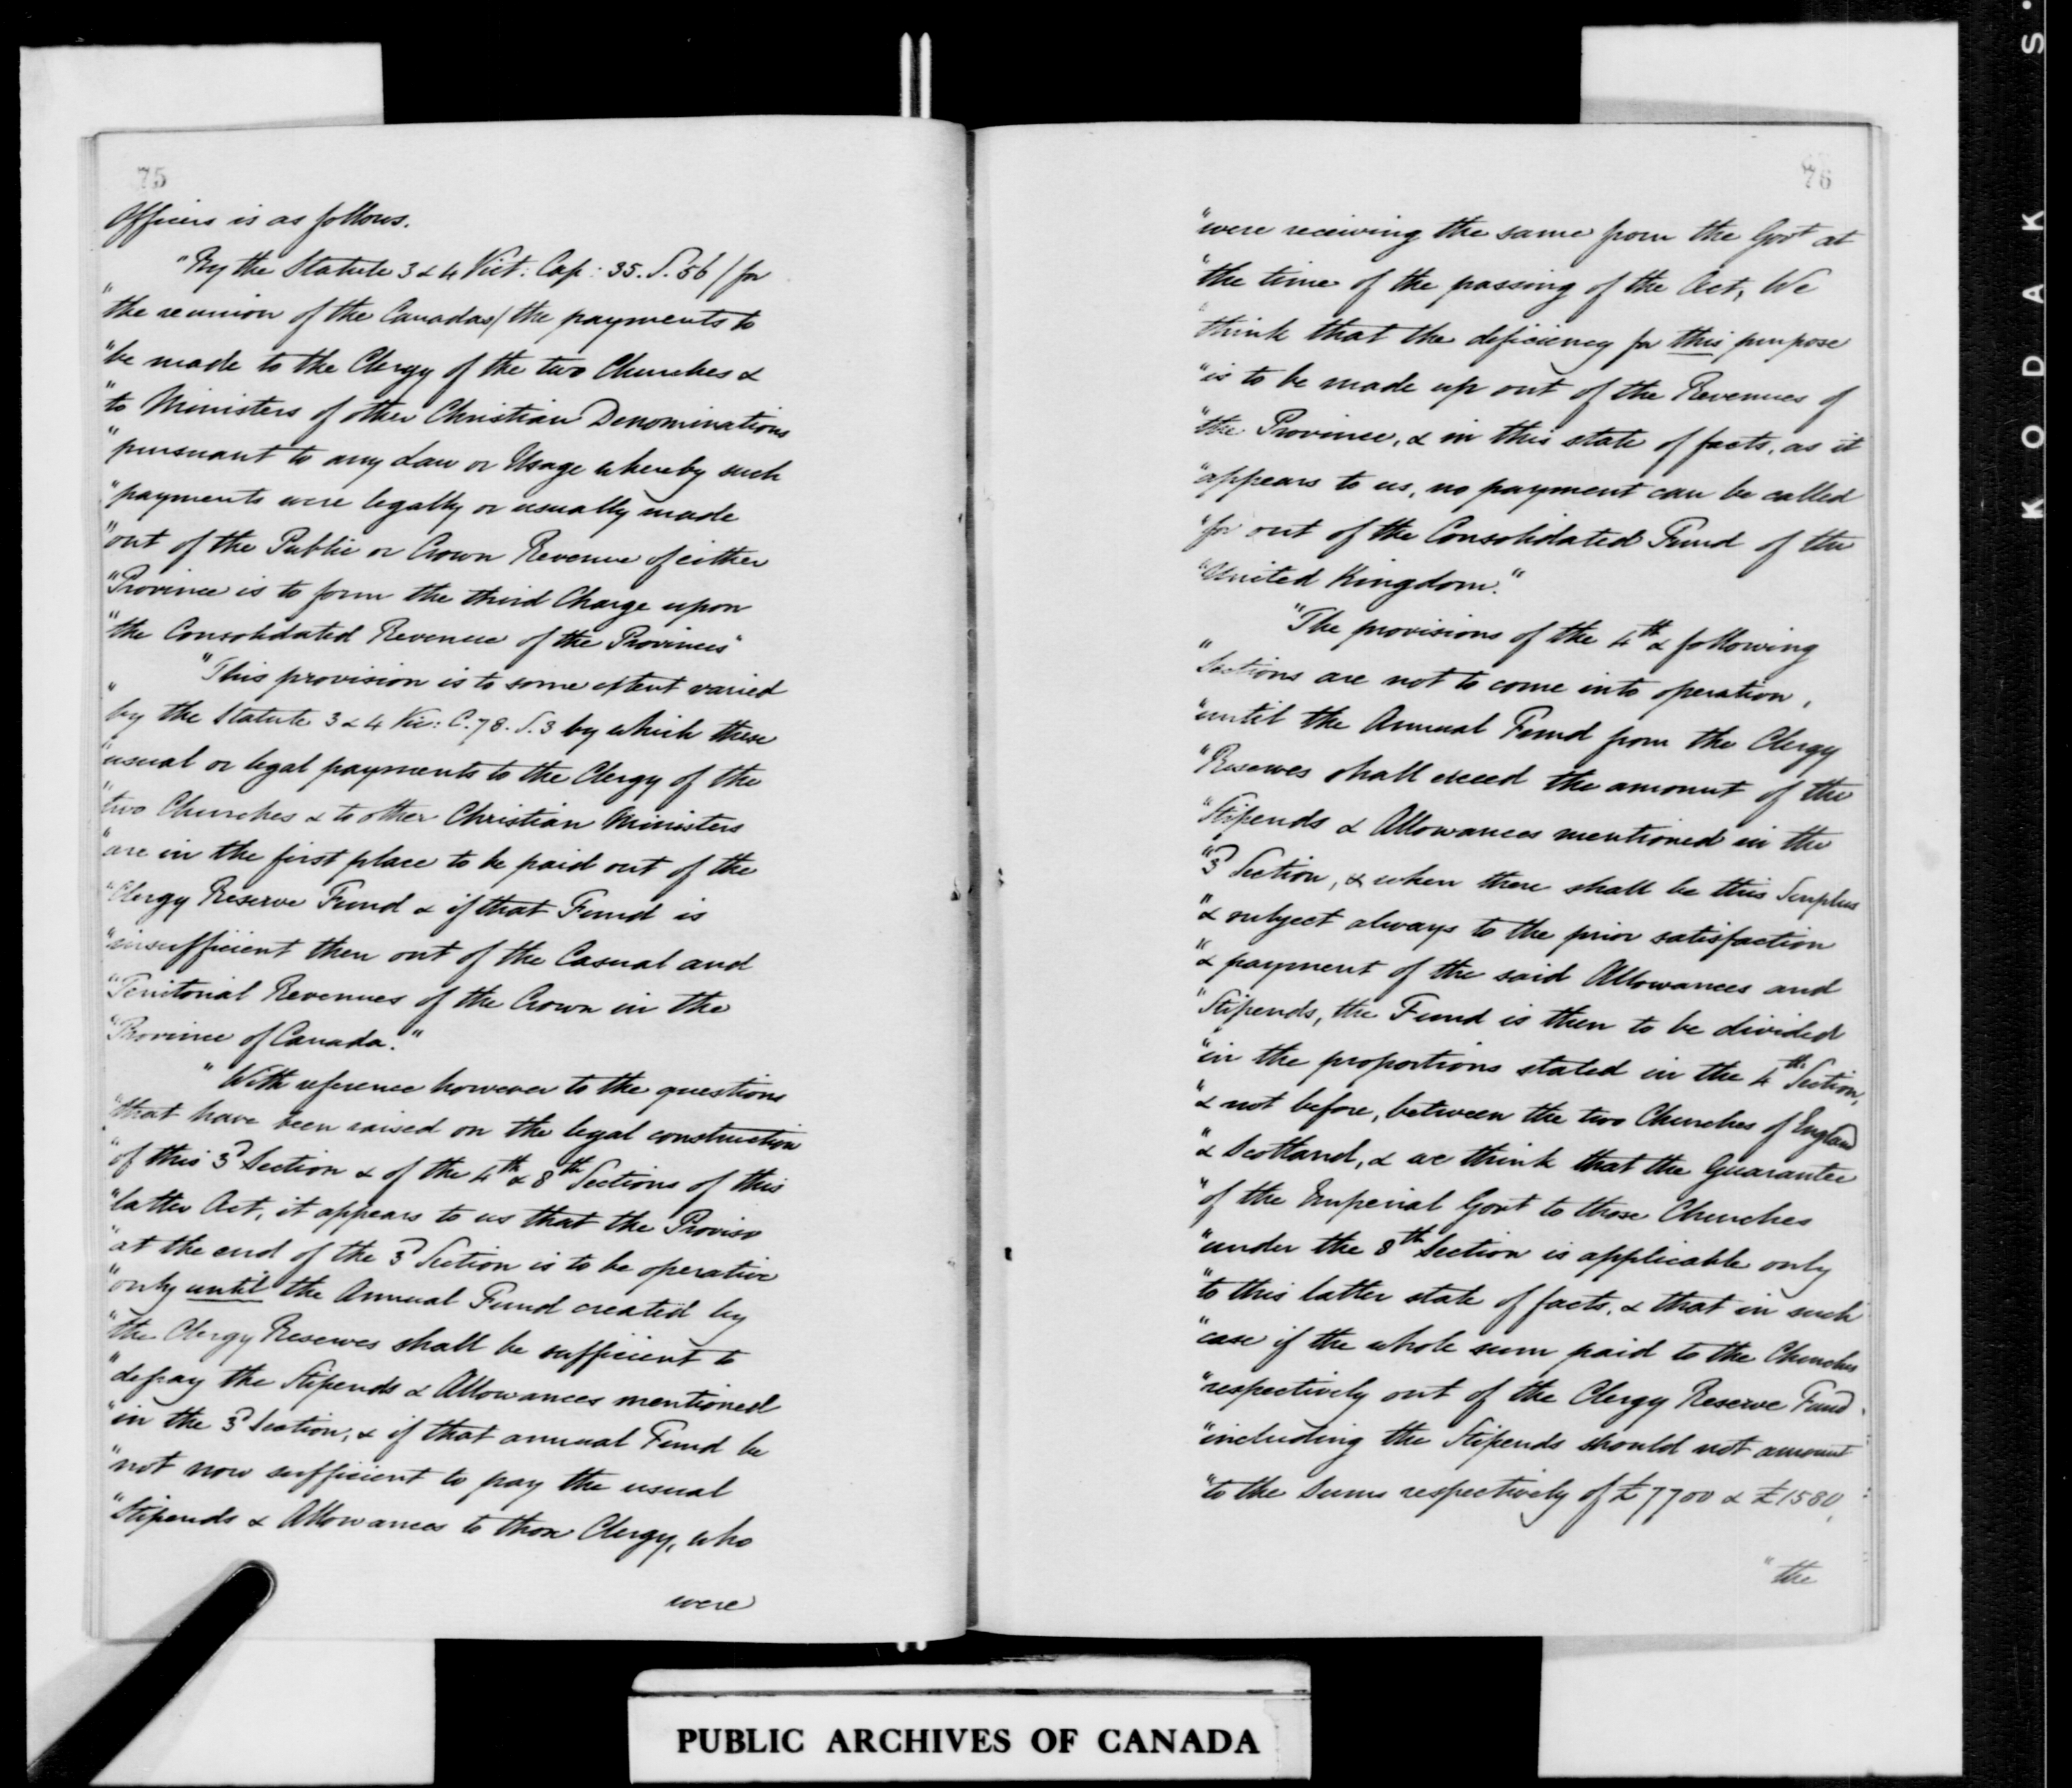 75
Officers is as follows.
"By the Statute 3 & 4 Vict: Cap: 35. S. 56 / for
"the reunion of the Canadas / the payments to
"be made to the Clergy of the two Churches &
"to Ministers of other Christian Denominations
"pursuant to any Law or Usage whereby such
"payments were legally or usually made
"out of the Public or Crown Revenue of either
"Province is to form the third Charge upon
"the Consolidated Revenue of the Provinces"
"This provision is to some extent varied
"by the Statute 3 & 4 Vic: C. 78. S. 3 by which these
"usual or legal payments to the Clergy of the
"two Churches & to other Christian Ministers
"are in the first place to be paid out of the
"Clergy Reserve Fund & if that Fund is
"insufficient then out of the Casual and
"Territorial Revenues of the Crown in the
"Province of Canada."
"With reference however to the questions
"that have been raised on the legal construction
"of this 3d Section & of the 4th & 8th Sections of this
"latter Act, it appears to us that the Proviso
"at the end of the 3d Section is to be operative
"only until the Annual Fund created by
"the Clergy Reserves shall be sufficient to
"defray the Stipends & Allowances mentioned
"in the 3d Section; & if that annual Fund be
"not now sufficient to pay the usual
"Stipends & Allowances to those Clergy, who
were
76
"were receiving the same from the Govt at
"the time of the passing of the Act, We
"think that the deficiency for this purpose
"is to be made up out of the Revenues of
"the Province, & in this state of facts, as it
"appears to us, no payment can be called
"for out of the Consolidated Fund of the
"United Kingdom."
"The provisions of the 4th & following
"Sections are not to come into operation,
"until the Annual Fund from the Clergy
"Reserves shall exceed the amount of the
"Stipends & Allowances mentioned in the
"3d Section, & when there shall be this Surplus
"& subject always to the prior satisfaction
"& payment of the said Allowances and
"Stipends, the Fund is then to be divided
"in the proportions stated in the 4th Section,
"& not before, between the two Churches of England
"& Scotland, & we think that the Guarantee
"of the Imperial Govt to those Churches
"under the 8th Section is applicable only
"to this latter state of facts, & that in such
"case if the whole sum paid to the Churches
"respectively out of the Clergy Reserve Fund
"including the Stipends should not amount
"to the Sums respectively of £7700 & £1580,
"the
PUBLIC ARCHIVES OF CANADA
KODAK S.